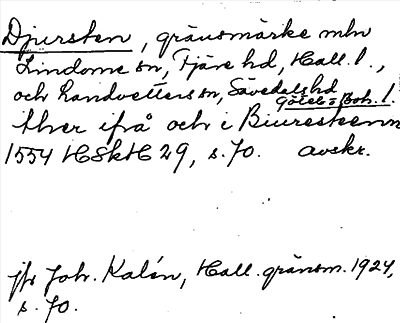 Djursten, gränsmärke mln
Lindome sn, Fjäre hd, Hall. l.,
och Landvetters sn, Sävedals hd
Göteb. o Boh. l.
ther ifrå och i Biuresteenn
1554 HSkH 29, s. 70. avskr.
jfr Joh. Kalén, Hall. gränsm. 1924,
s. 70.